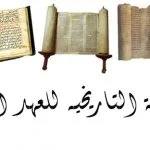 ة التاريخيه للعهد ا